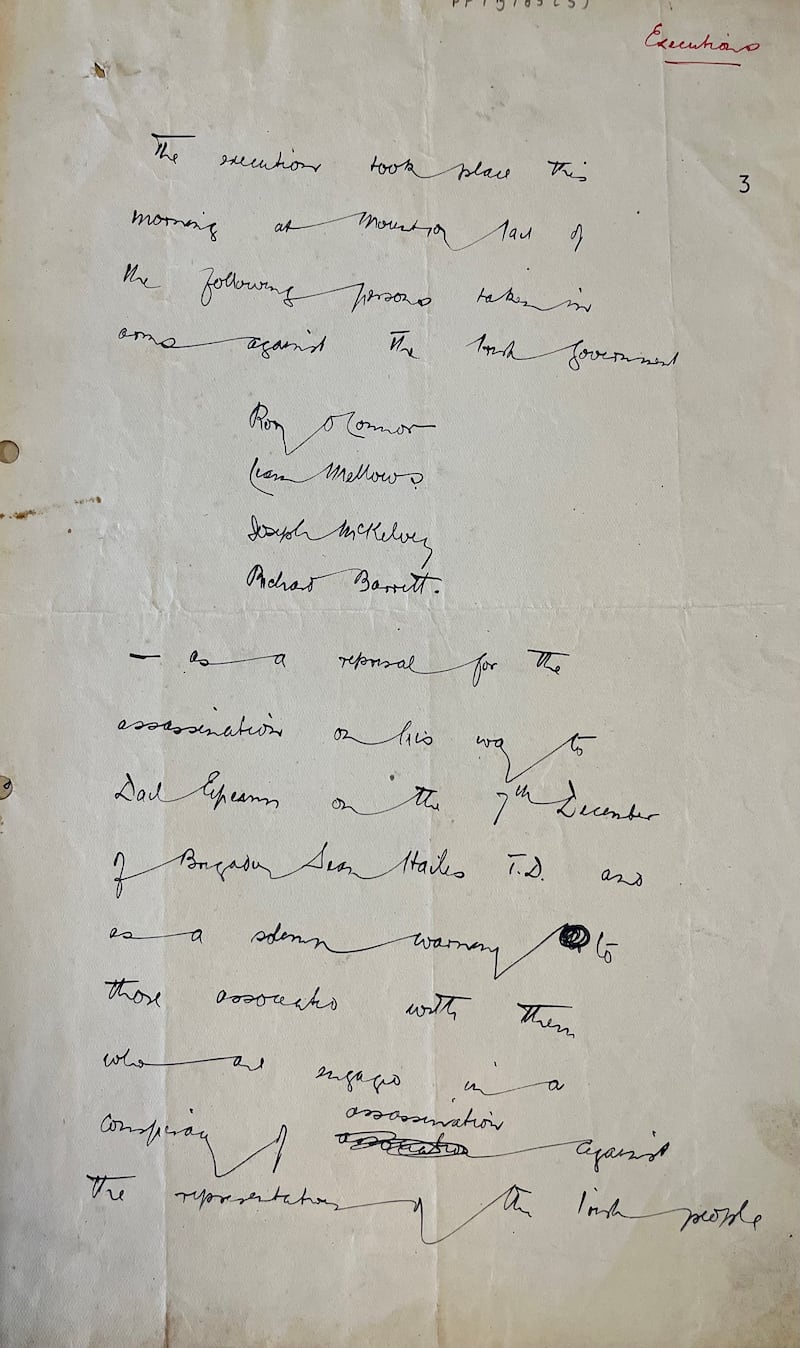 Executions
3
The executions took place this
morning at Mountjoy Jail of
the following persons taken in
arms against the Irish Government
Rory O'Connor
Liam Mellows
Joseph McKelvey
Richard Barrett.
— as a reprisal for the
assassination on his way to
Dail Eireann on the 7th December
of Brigadier Sean Hales T.D. and
as a solemn warning to
those associated with them
who are engaged in a
conspiracy of assassination
against
the representatives of the Irish people